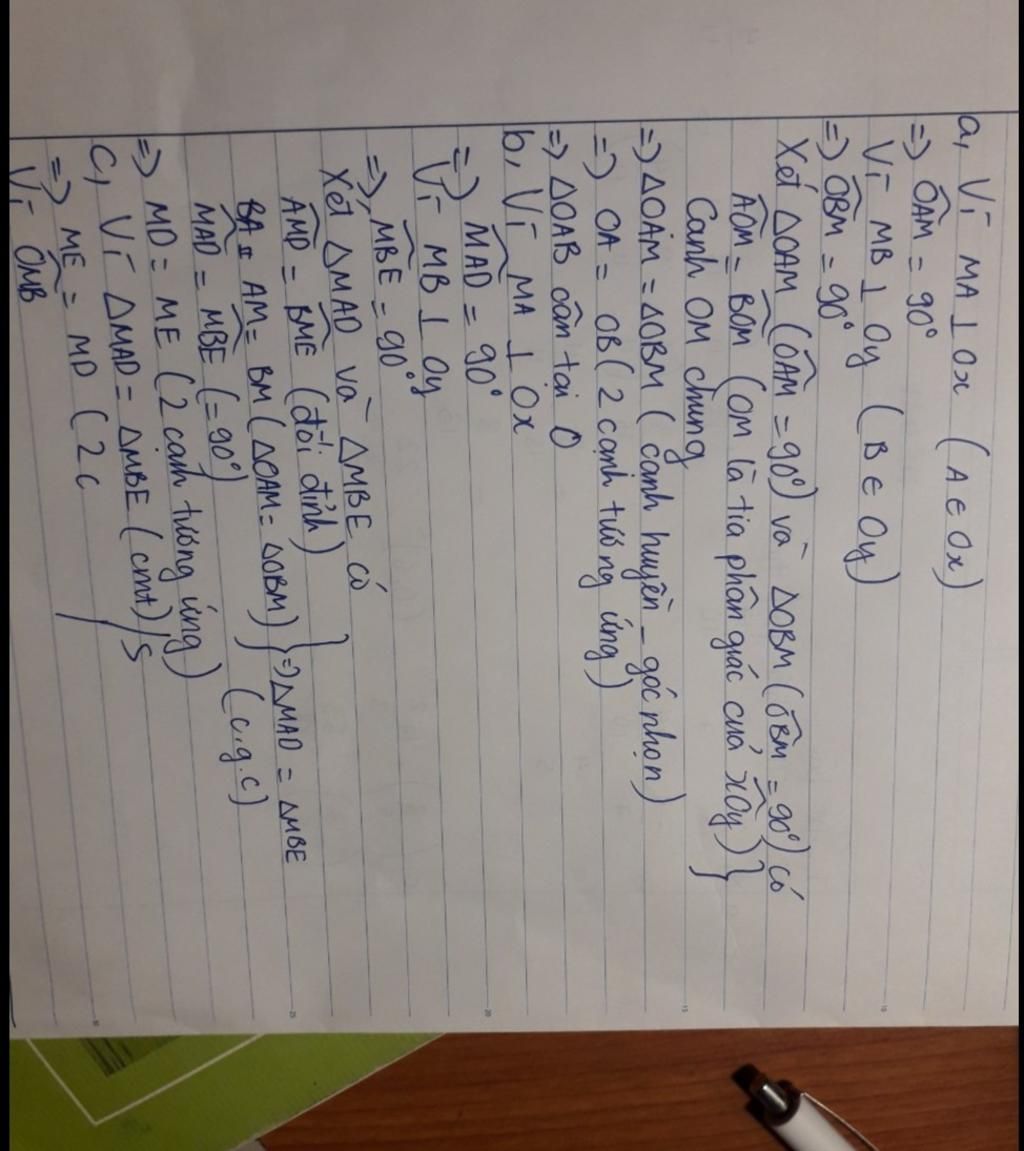 a, Vì MA ⊥ Ox (A ∈ Ox)
=> OAM = 90°
Vì MB ⊥ Oy (B ∈ Oy)
=> OBM = 90°
Xét ΔOAM (OAM = 90°) và ΔOBM (OBM = 90°) có
AOM = BOM (OM là tia phân giác của xOy) }
Cạnh OM chung
=> ΔOAM = ΔOBM (cạnh huyền - góc nhọn)
=> OA = OB (2 cạnh tương ứng)
=> ΔOAB cân tại O
b, Vì MA ⊥ Ox
=> MAD = 90°
Vì MB ⊥ Oy
=> MBE = 90°
Xét ΔMAD và ΔMBE có
AMD = BME (đối đỉnh)
AM = BM (ΔOAM = ΔOBM) } => ΔMAD = ΔMBE
MAD = MBE (= 90°) (c.g.c)
=> MD = ME (2 cạnh tương ứng)
c, Vì ΔMAD = ΔMBE (cmt)
=> ME = MD (2 c
Vì OMB